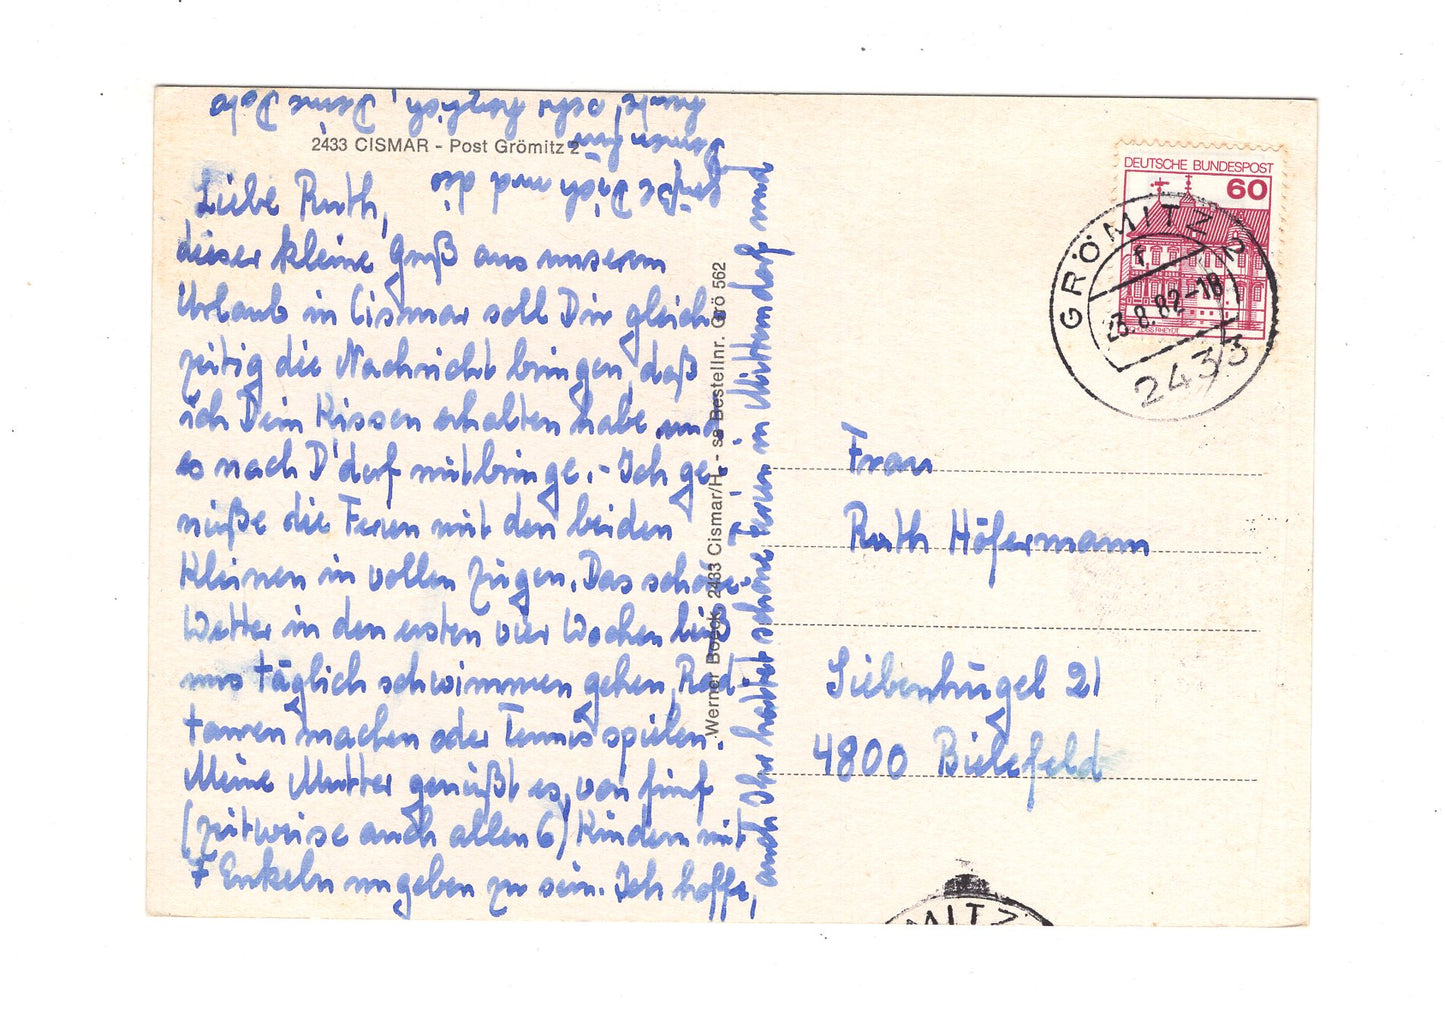 2433 CISMAR - Post Grömitz 2
Liebe Ruth,
dieser kleine Gruß aus unserem
Urlaub in Cismar soll Dir gleich
zeitig die Nachricht bringen, daß
ich Dein Kissen erhalten habe und
es nach D'dorf mitbringe. - Ich ge-
nieße die Ferien mit den beiden
Kleinen in vollen Zügen. Das schöne
Wetter in den ersten vier Wochen ließ
uns täglich schwimmen gehen, Rad-
touren machen oder Tennis spielen.
Meine Mutter genießt es, von fünf
(zeitweise auch allen 6) Kindern mit
7 Enkeln umgeben zu sein. Ich hoffe,
auch Ihr hattet schöne Ferien in Mittendorf und
grüße Dich und die
Deinen für
heute sehr herzlich, Deine
Werner Boeck, 2433 Cismar/H. - sa Bestellnr. Grö 562
DEUTSCHE BUNDESPOST
60
SCHLOSS RHEYDT
GRÖMITZ 2
f
23.8.82-18
2433
Frau
Ruth Höfermann
Siebenhügel 21
4800 Bielefeld
MITZ